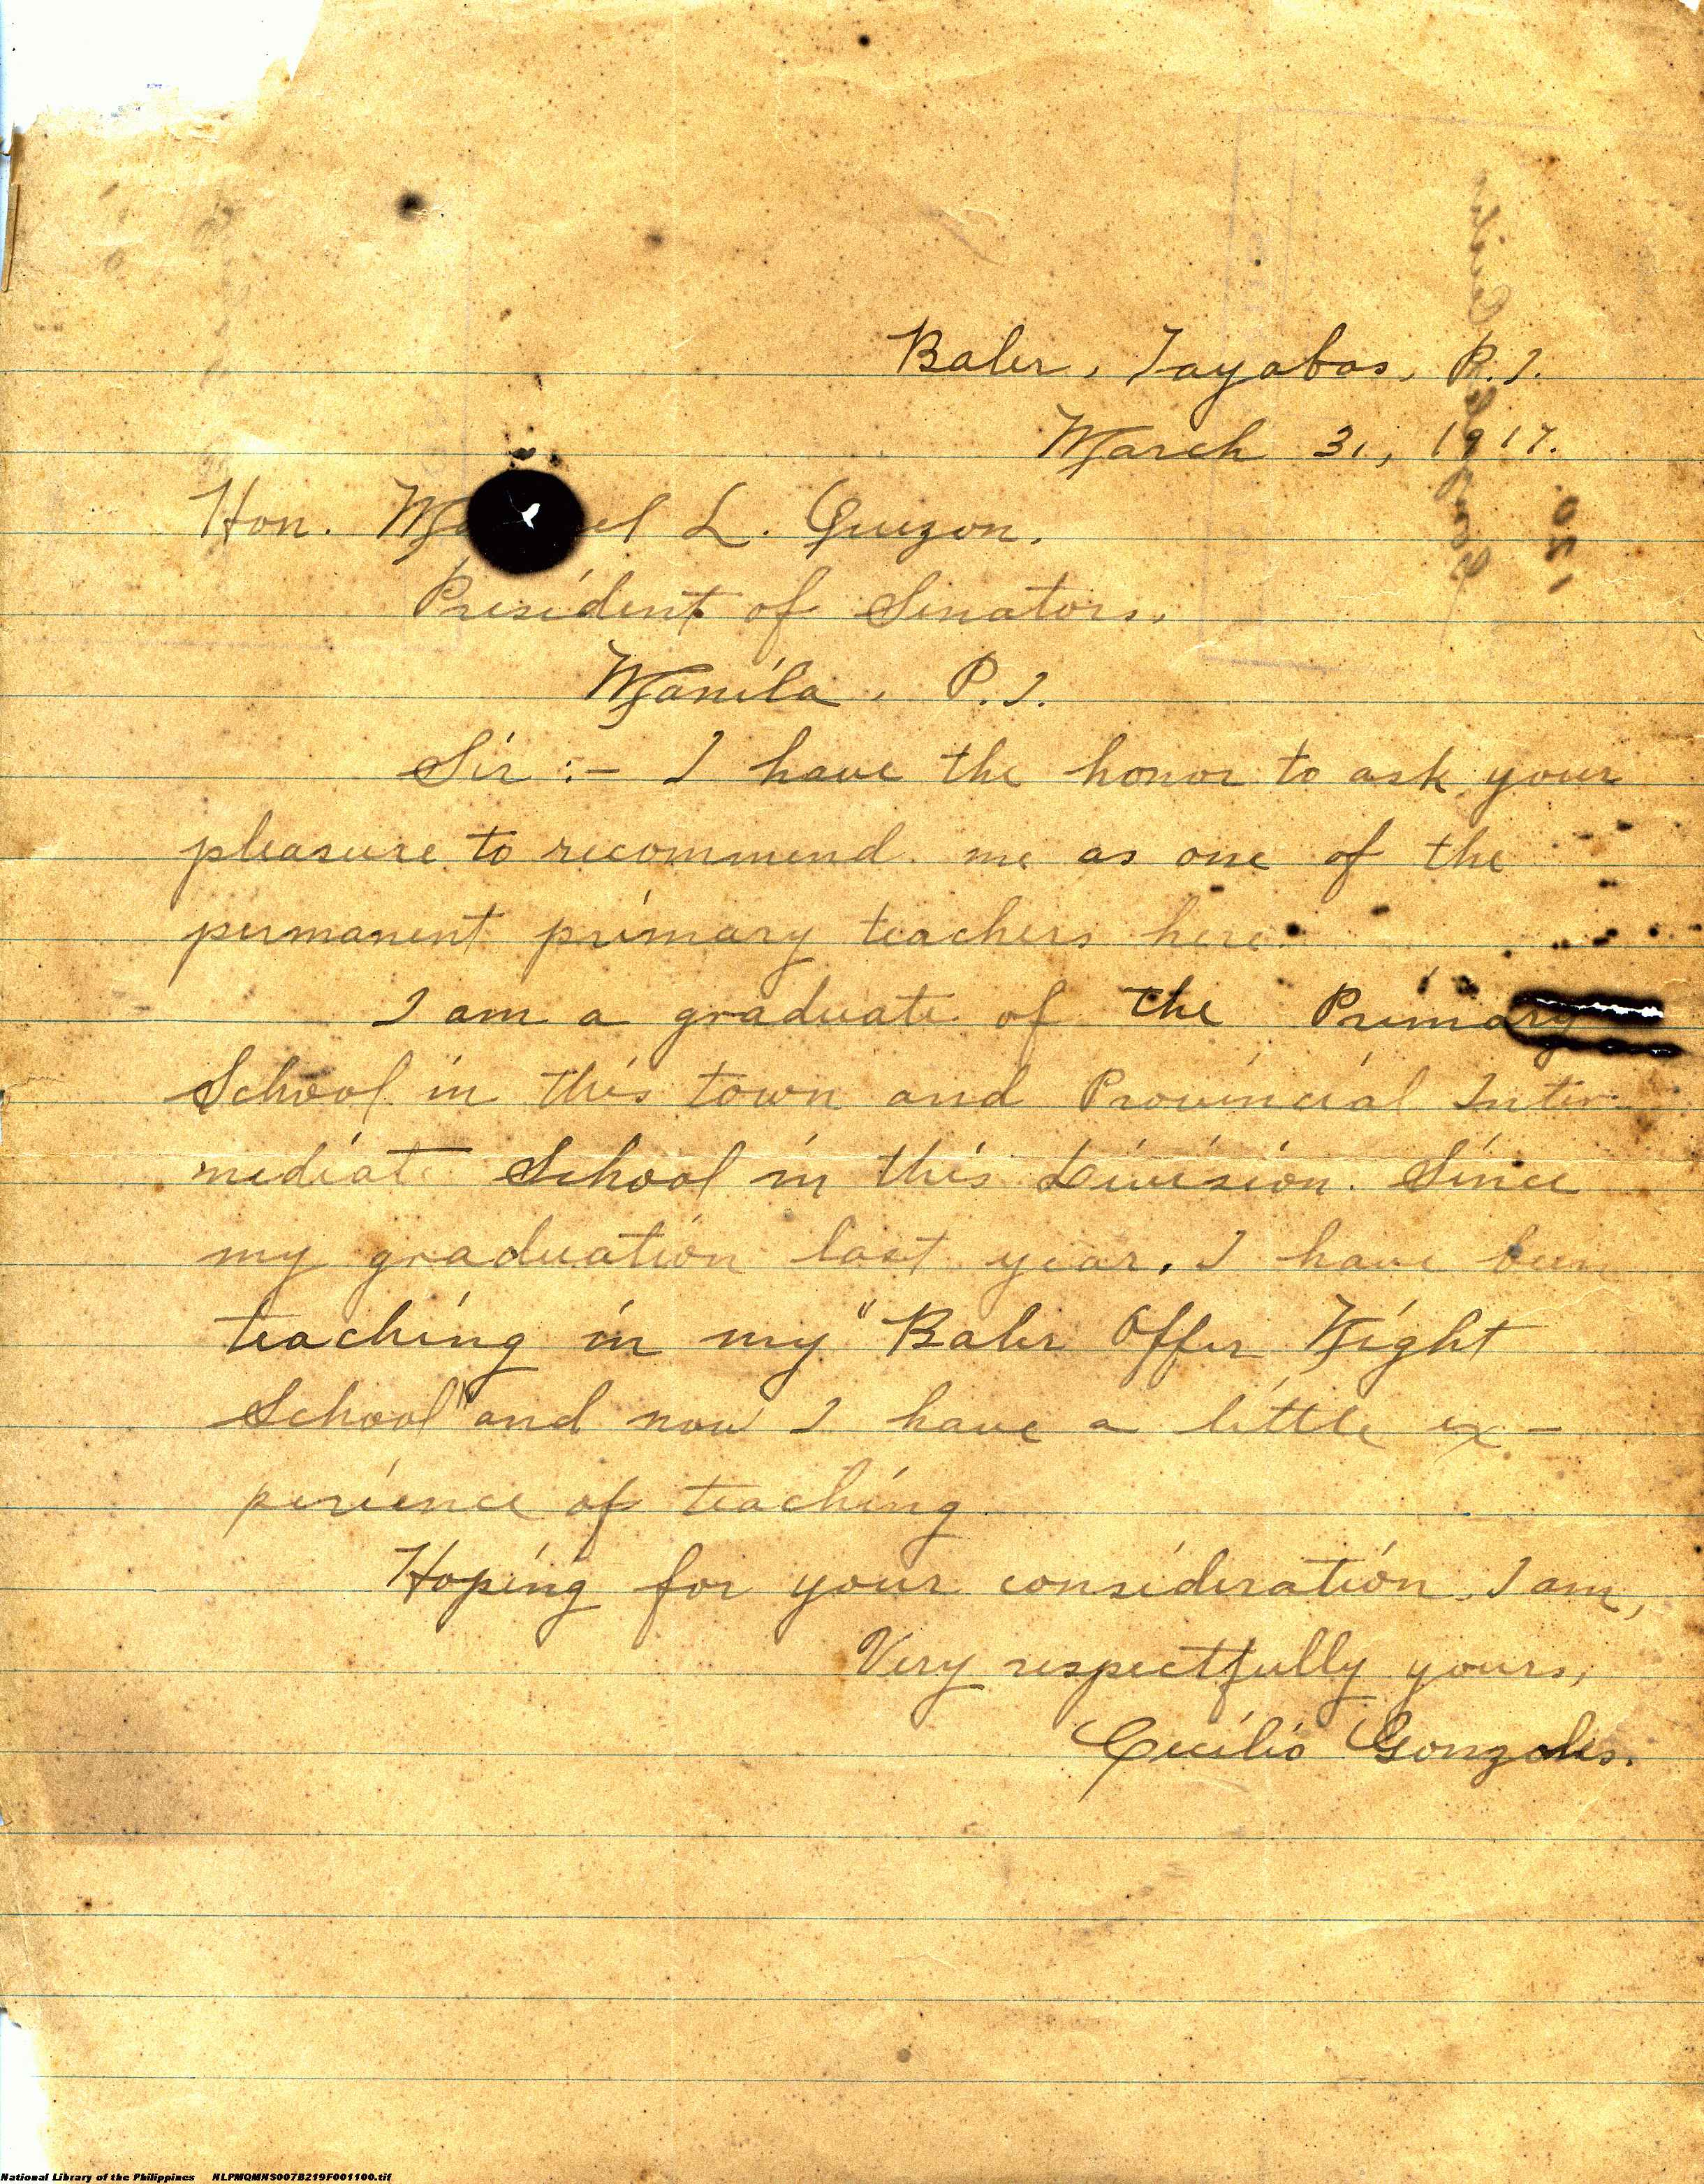 Baler, Tayabas, P.I.
March 31, 1917.
Hon. Manuel L. Quezon.
President of Senators.
Manila, P.I.
Sir :- I have the honor to ask your
pleasure to recommend me as one of the
permanent primary teachers here.
I am a graduate of the Primary
School in this town and Provincial Inter-
mediate School in this Division. Since
my graduation last year, I have been
teaching in my "Baler Offer Night
School" and now I have a little ex-
perience of teaching
Hoping for your consideration, I am,
Very respectfully yours,
Cecilio Gonzales.
National Library of the Philippines NLPMQMNS007B219F001100.tif